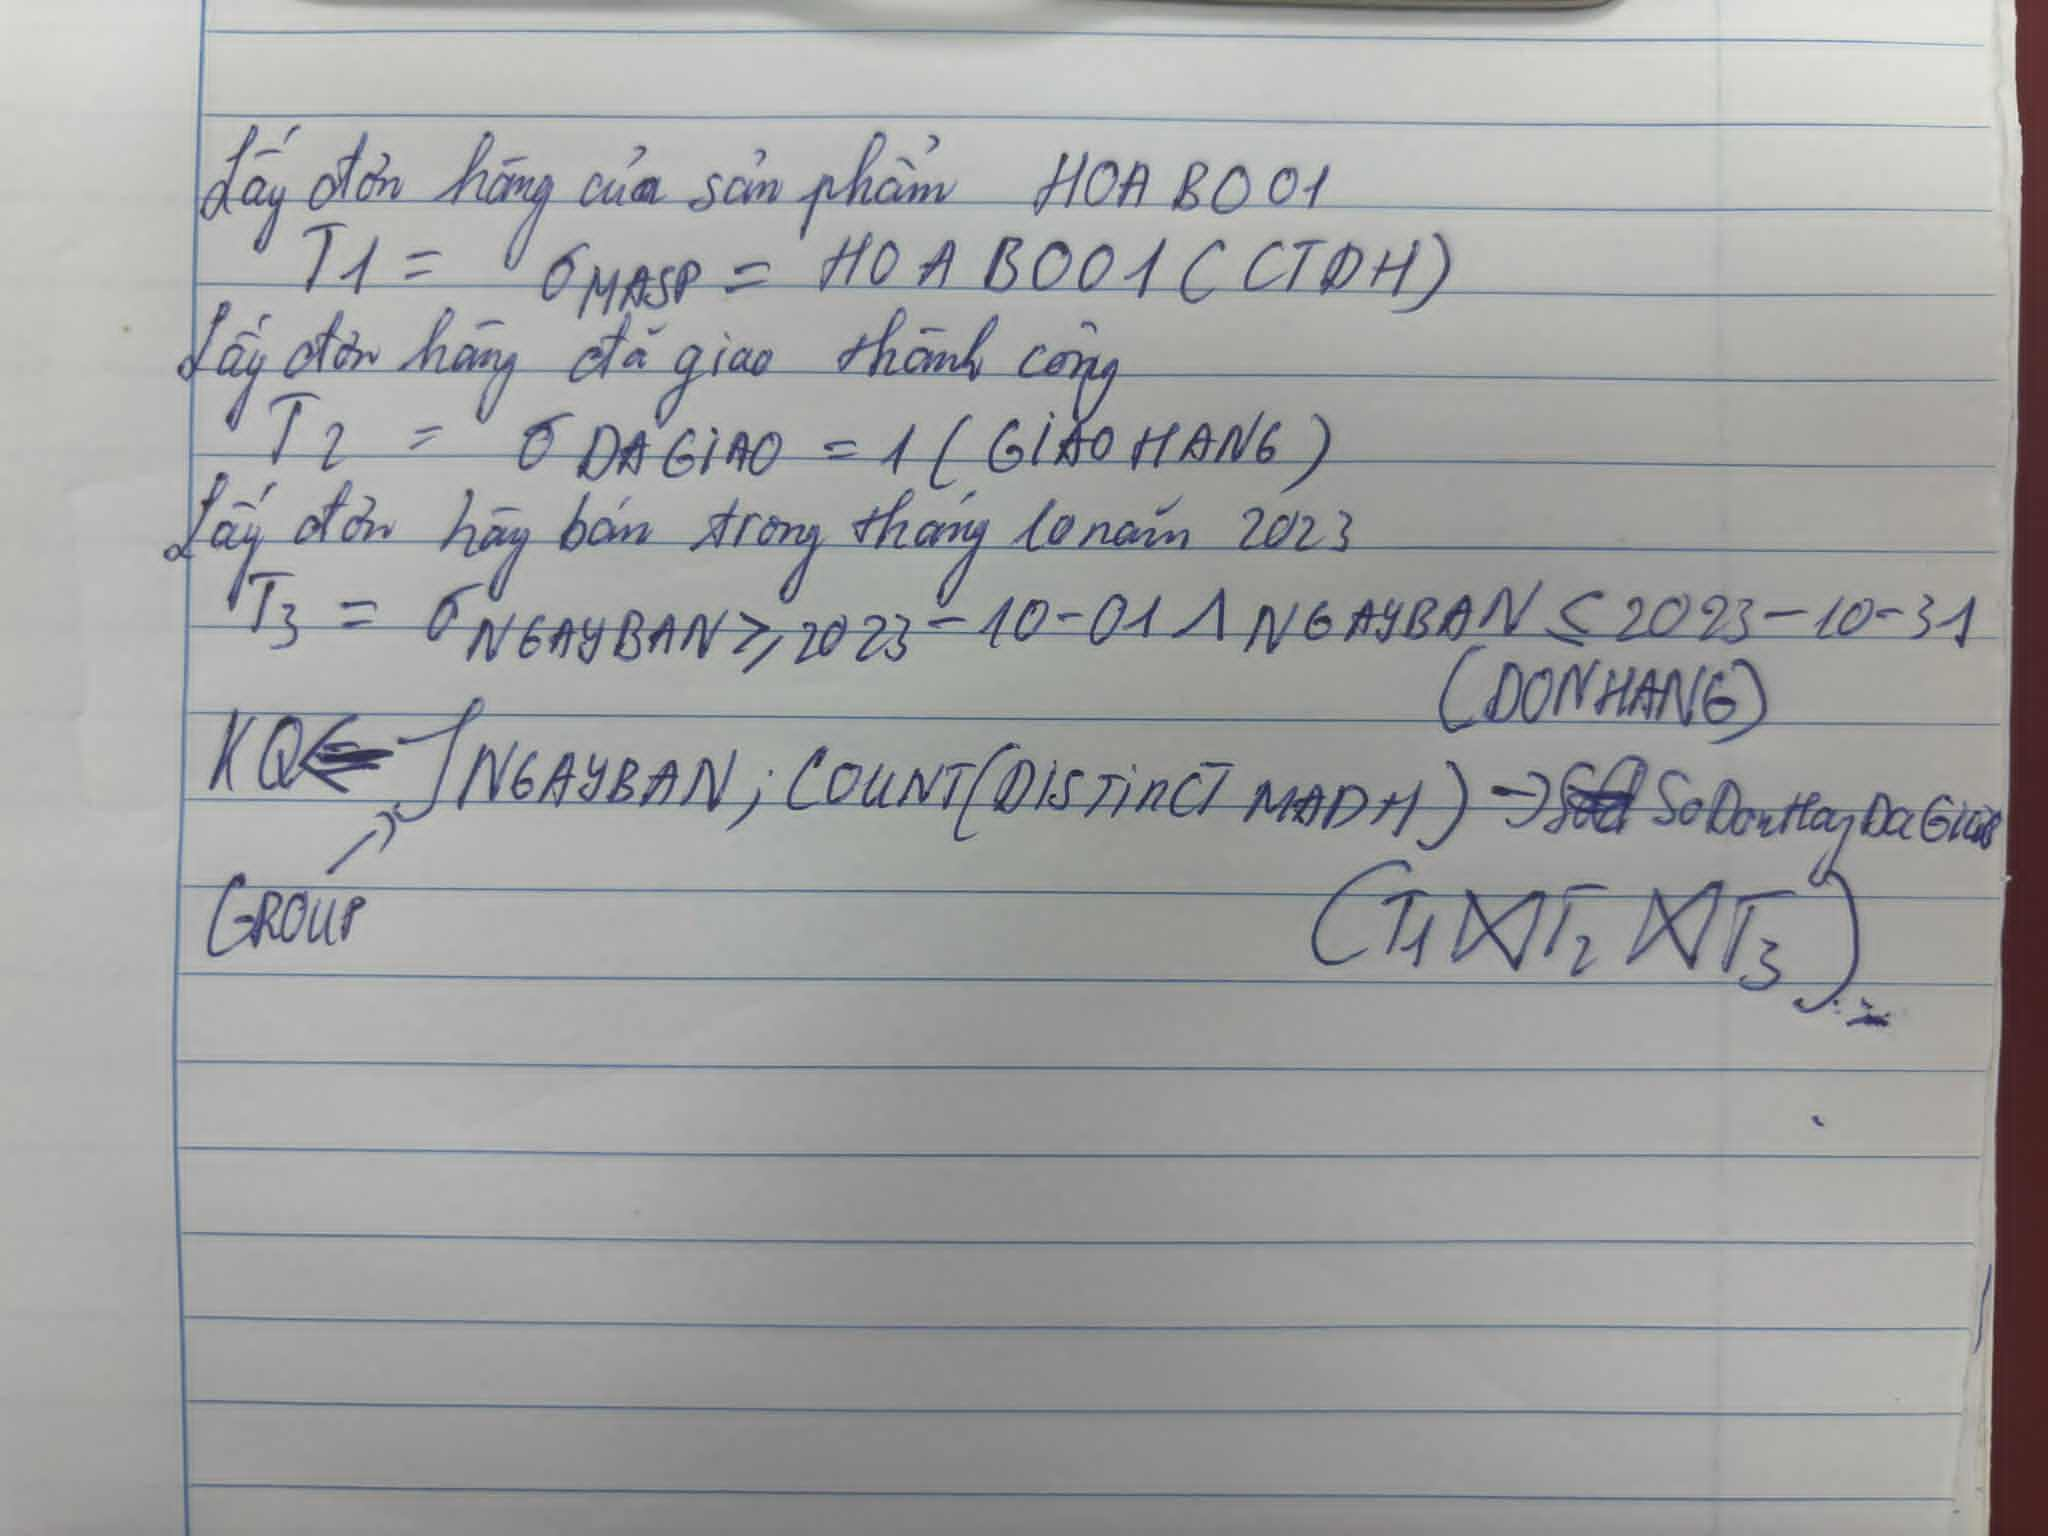 Lấy đơn hàng của sản phẩm HOA B001
T1 = σ MASP = HOA B001 (CTDH)
Lấy đơn hàng đã giao thành công
T2 = σ DAGIAO = 1 (GIAOHANG)
Lấy đơn hàg bán trong tháng 10 năm 2023
T3 = σ NGAYBAN ≥ 2023-10-01 ∧ NGAYBAN ≤ 2023-10-31
(DONHANG)
KQ ← ℑ NGAYBAN; COUNT(DISTINCT MADH) → SoDonHagDaGiao
GROUP
(T1 ⋈ T2 ⋈ T3)